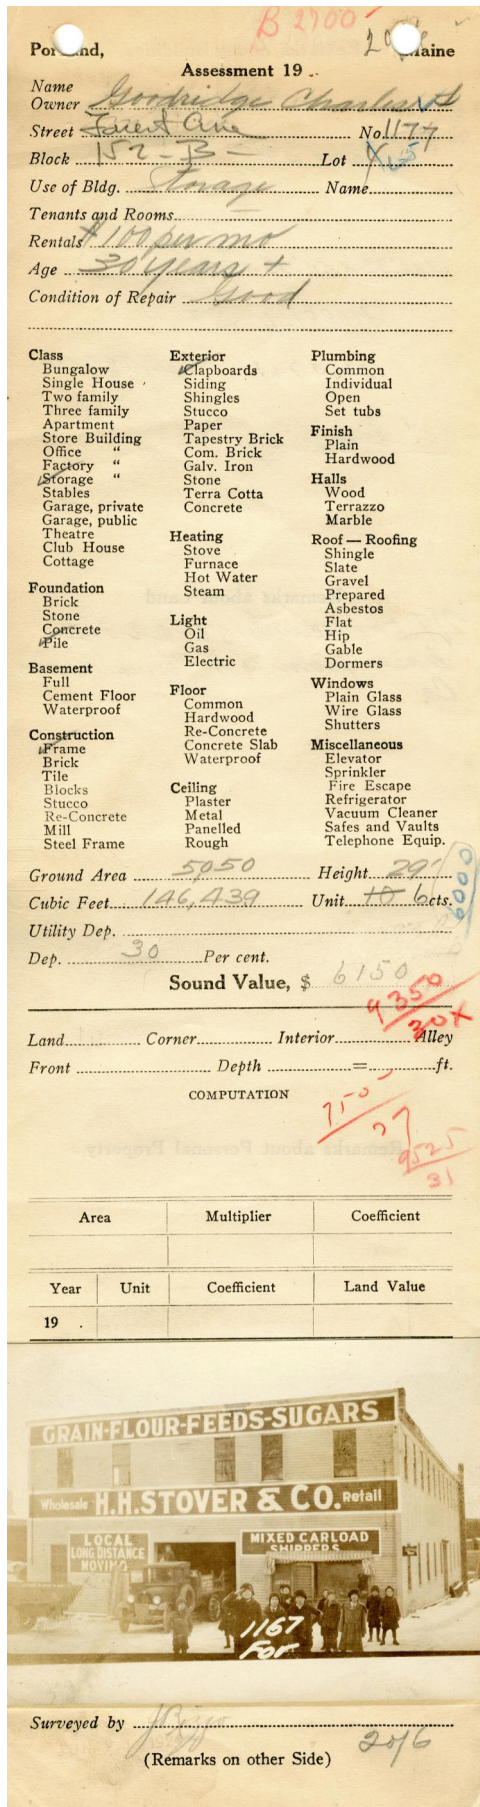 B 2700
Portland, Maine
Assessment 19
Name
Owner Goodridge Charles
Street Forest Ave No. 1177
Block 152-B- Lot
Use of Bldg. Storage Name
Tenants and Rooms
Rentals $100 per mo
Age 30 years +
Condition of Repair Good
Class
Bungalow
Single House
Two family
Three family
Apartment
Store Building
Office "
Factory "
Storage "
Stables
Garage, private
Garage, public
Theatre
Club House
Cottage
Foundation
Brick
Stone
Concrete
Pile
Basement
Full
Cement Floor
Waterproof
Construction
Frame
Brick
Tile
Blocks
Stucco
Re-Concrete
Mill
Steel Frame
Exterior
Clapboards
Siding
Shingles
Stucco
Paper
Tapestry Brick
Com. Brick
Galv. Iron
Stone
Terra Cotta
Concrete
Heating
Stove
Furnace
Hot Water
Steam
Light
Oil
Gas
Electric
Floor
Common
Hardwood
Re-Concrete
Concrete Slab
Waterproof
Ceiling
Plaster
Metal
Panelled
Rough
Plumbing
Common
Individual
Open
Set tubs
Finish
Plain
Hardwood
Halls
Wood
Terrazzo
Marble
Roof — Roofing
Shingle
Slate
Gravel
Prepared
Asbestos
Flat
Hip
Gable
Dormers
Windows
Plain Glass
Wire Glass
Shutters
Miscellaneous
Elevator
Sprinkler
Fire Escape
Refrigerator
Vacuum Cleaner
Safes and Vaults
Telephone Equip.
Ground Area 5050 Height 29'
Cubic Feet 146,439 Unit 10 6 cts.
6000
Utility Dep.
Dep. 30 Per cent.
Sound Value, $ 6150
9350
30x
Land Corner Interior Alley
Front Depth = ft.
COMPUTATION
9525
31
Area Multiplier Coefficient
Year Unit Coefficient Land Value
19
GRAIN-FLOUR-FEEDS-SUGARS
Wholesale H.H. STOVER & CO. Retail
LOCAL
LONG DISTANCE
MOVING
MIXED CARLOAD
SHIPPERS
1167
For
Surveyed by
2016
(Remarks on other Side)